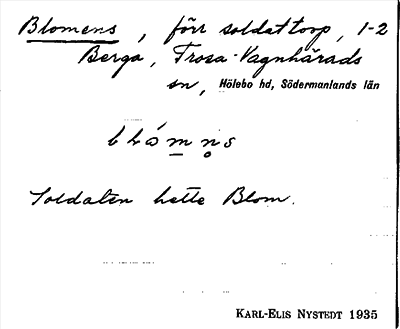 Blomens, förr soldattorp, 1-2
Berga, Trosa-Vagnhärads
sn, Hölebo hd, Södermanlands län
blómns
Soldaten hette Blom.
KARL-ELIS NYSTEDT 1935